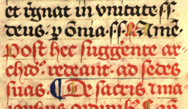 et regnat in unitate ss.
deus. p omnia. ss. Amē.
Post hec surgente ar
chiō. redeant ad sedes
suas. De sacris ima